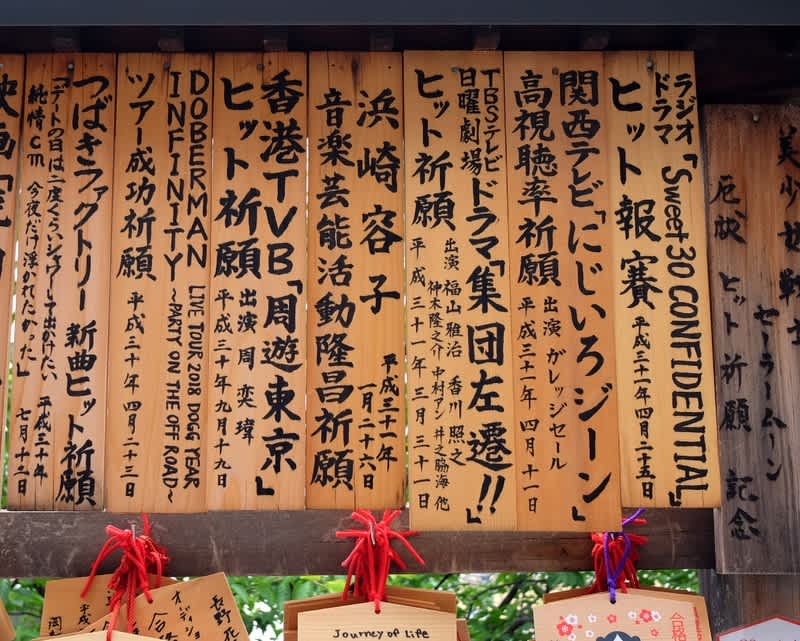 美少女戦士
セーラームーン
厄祓 ヒット祈願 記念
ラジオ
ドラマ「Sweet 30 CONFIDENTIAL」
ヒット報賽 平成三十一年四月二十五日
関西テレビ「にじいろジーン」
高視聴率祈願 出演 ガレッジセール
平成三十一年四月十一日
TBSテレビ
日曜劇場 ドラマ「集団左遷!!」
ヒット祈願 出演 福山雅治 香川照之
神木隆之介 中村アン 井之脇海 他
平成三十一年三月三十一日
浜崎容子 平成三十一年
一月二十六日
音楽芸能活動隆昌祈願
香港TVB「周遊東京」
ヒット祈願 出演 周奕瑋
平成三十年九月十九日
DOBERMAN LIVE TOUR 2018 DOGG YEAR
INFINITY ~PARTY ON THE OFF ROAD~
ツアー成功祈願 平成三十年四月二十三日
つばきファクトリー 新曲ヒット祈願
「デートの日は二度くらいシャワーして出かけたい 平成三十年
純情cm 今夜だけ浮かれたかった」 七月十三日
映画「
Journey of Life